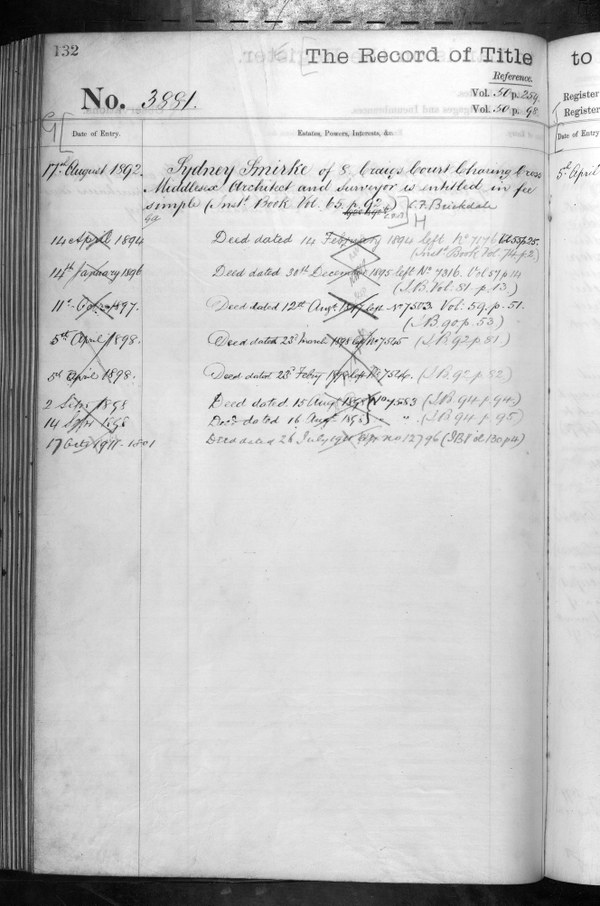 132
The Record of Title
to
Reference.
No. 3881.
Vol. 50 p. 259.
Vol. 50 p. 98.
Register
Register
G
Date of Entry.
Estates, Powers, Interests, &c.
Date of Entry
17th August 1892.
Sydney Smirke of 8 Craigs Court Charing Cross
5th April
Middlesex Architect and Surveyor is entitled in fee
simple (Inst. Book Vol. 65. p. 92.) C.F. Brickdale
H
14 April 1894
Deed dated 14 February 1894 left No 7176
(Inst. Book Vol. 74. p. 2)
14th January 1896
Deed dated 30th December 1895 left No 7316. Vol 57 p 14
(I.B. Vol. 81. p. 13)
1897.
Deed dated 12th Augt. 1897 left No 7583 Vol. 59. p. 51.
(I.B. 90. p. 53)
5th April 1898.
Deed dated 23d March 1898 left (I.B. 92 p 81.)
5th April 1898.
Deed dated 23d Febry 1898 left (I.B. 92. p. 82)
2 Septr 1898
Deed dated 15 Augt 1898 (I.B. 94 p. 94)
14 Septr 1898
Deed dated 16 Augt 1898 " (I.B. 94 p. 95)
17 Octr 1911
Deed dated 26 July 1911 No 12796 (I.B. Vol 130 p 4)